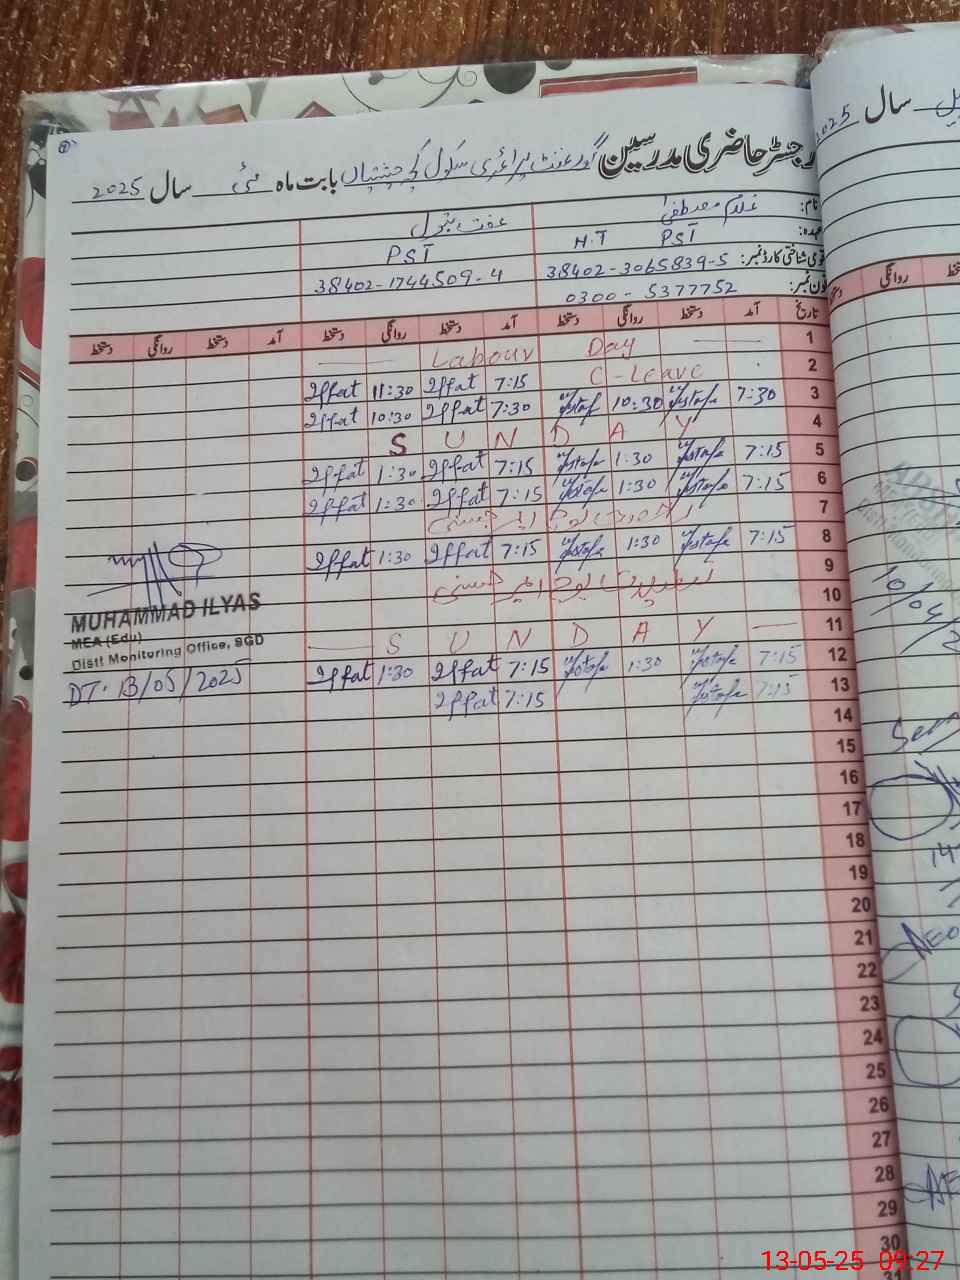 رجسٹر حاضری مدرسین گورنمنٹ پرائمری سکول بابت ماہ مئی سال 2025
نام: غلام مصطفیٰ عفت بتول
عہدہ: PST H.T PST
قومی شناختی کارڈ نمبر: 38402-3065839-5 38402-1744509-4
فون نمبر: 0300-5377752
تاریخ آمد دستخط روانگی دستخط آمد دستخط روانگی دستخط آمد دستخط روانگی دستخط
1 Labour Day
2 C-Leave 7:15 Iffat 11:30 Iffat
3 7:30 Mustafa 10:30 Mustafa 7:30 Iffat 10:30 Iffat
4 S U N D A Y
5 7:15 Mustafa 1:30 Mustafa 7:15 Iffat 1:30 Iffat
6 7:15 Mustafa 1:30 Mustafa 7:15 Iffat 1:30 Iffat
7
8 7:15 Mustafa 1:30 Mustafa 7:15 Iffat 1:30 Iffat
9 تعطیلات بوجہ ایمرجنسی
10
11 S U N D A Y
12 7:15 Mustafa 1:30 Mustafa 7:15 Iffat 1:30 Iffat
13 7:15 Mustafa 7:15 Iffat
14
15
16
17
18
19
20
21
22
23
24
25
26
27
28
29
30
31
MUHAMMAD ILYAS
MEA (Edu)
Distt Monitoring Office, SGD
DT. 13/05/2025
سال 2025
روانگی
10/04/2
AEO
13-05-25 09:27